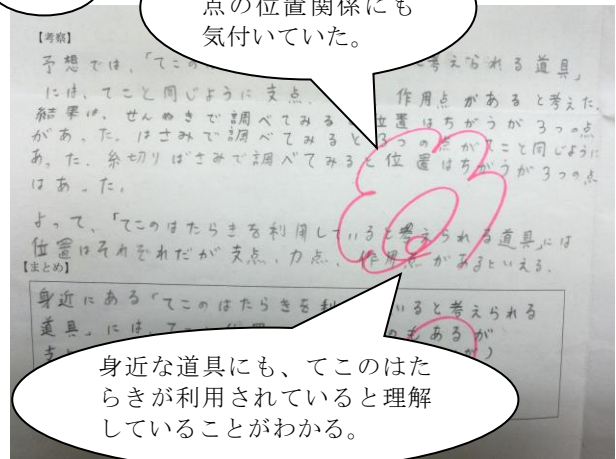 点の位置関係にも
気付いていた。
【考察】
予想では、「てこの 考えられる道具」
には、てこと同じように支点、 作用点があると考えた。
結果は、せんぬきで調べてみる 位置はちがうが3つの点
があった。はさみで調べてみると3つの点がてこと同じように
あった。糸切りばさみで調べてみると位置はちがうが3つの点
はあった。
よって、「てこのはたらきを利用していると考えられる道具」には
位置はそれぞれだが支点、力点、作用点があるといえる。
【まとめ】
身近にある「てこのはたらきを利 いると考えられる
道具」には、 もあるが
身近な道具にも、てこのはた
らきが利用されていると理解
していることがわかる。